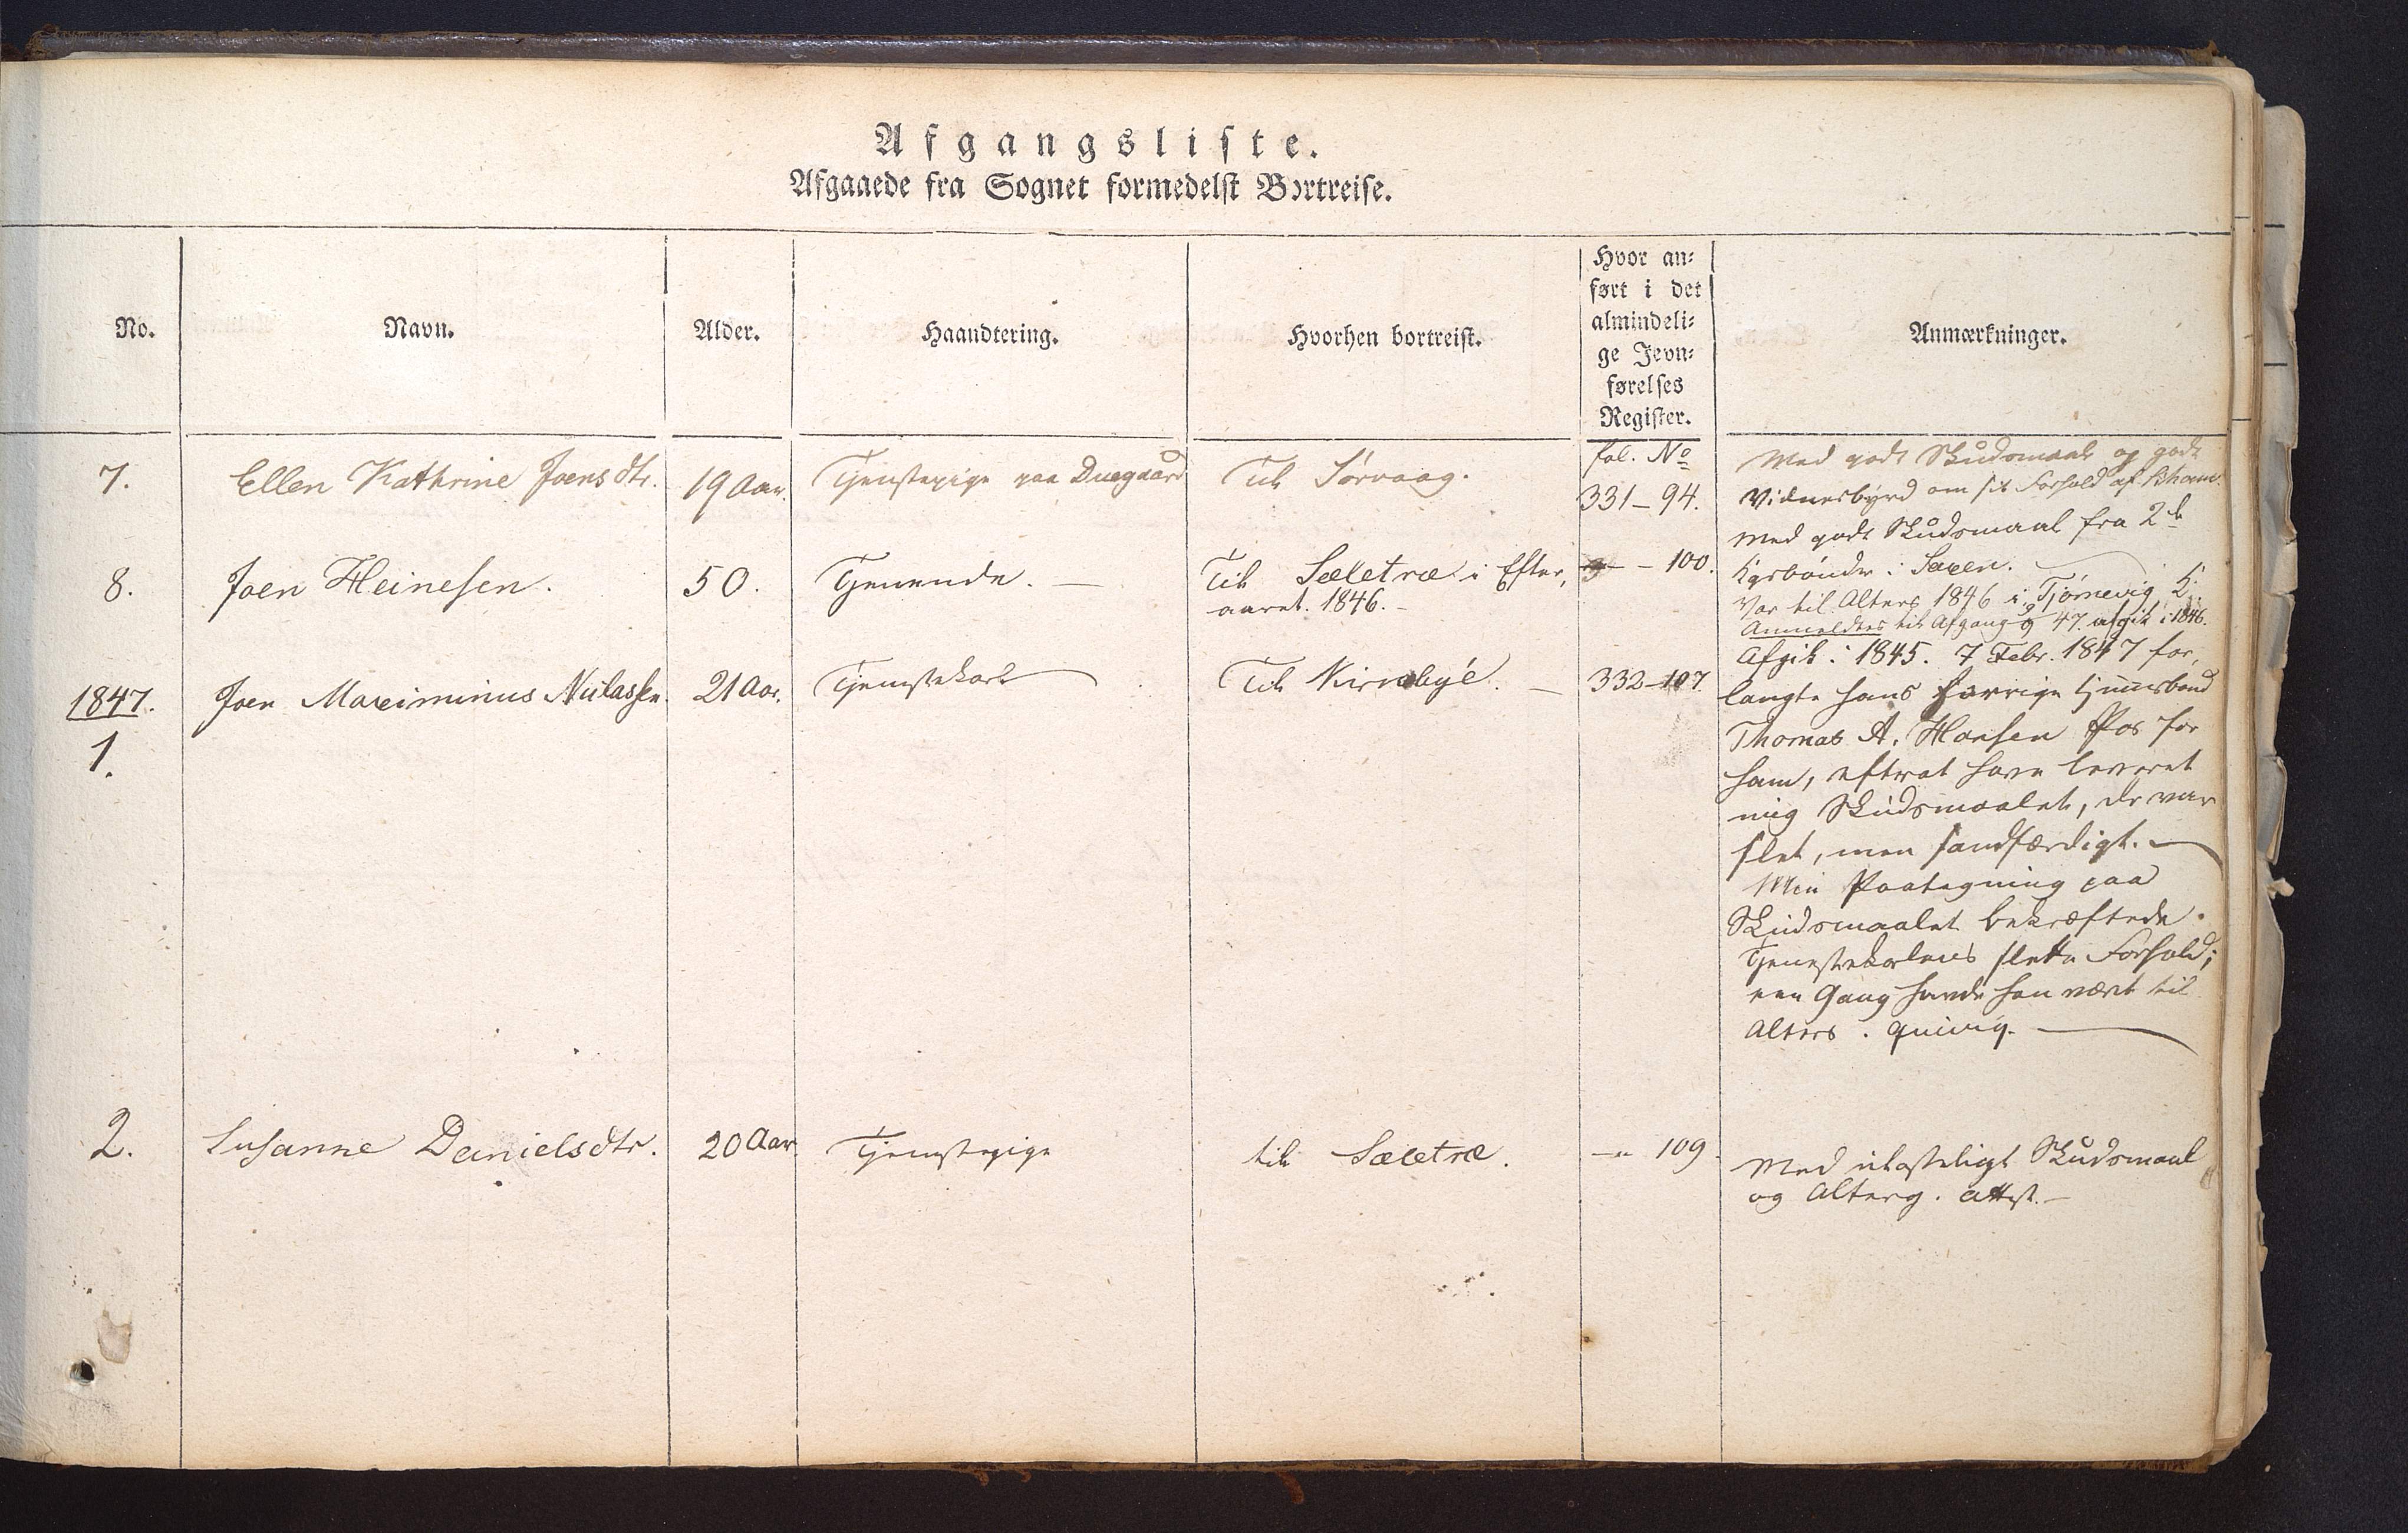 Afgangsliste.
Afgaaede fra Sognet formedelst Bortreise.
No.
Navn.
Alder.
Haandtering.
Hvorhen bortreist.
Hvor an-
ført i det
almindeli-
ge Jevn-
førelses
Register.
Anmærkninger.
7.
Ellen Kathrine Joensdtr.
19 Aar.
Tjenstepige paa Duegaard
Til Sørvaag.
fol. No
331 - 94.
Med godt Skudsmaal og godt
Vidnesbyrd om sit Forhold af
8.
Joen Heinesen.
50.
Tjenende. —
Til Sæletræ i Efter,
aaret. 1846. -
- 100.
Med godt Skudsmaal fra 2de
Huusbonde i Saxen.
Var til Alters 1846 i Tjørnevig
Anmeldtes til Afgang 47. afgik i 1846.
1847.
1.
Joen Maximinus Niclassen.
21 Aar.
Tjenstekarl
Til Kirkebyé. —
332 - 107
Afgik i 1845. 7 Febr. 1847 for,
langte hans forrige Huusbond
Thomas A. Hansen Pas for
ham, efterat have leveret
mig Skudsmaalet, der var
slet, men sandfærdigt. —
Min Paategning paa
Skudsmaalet bekræftede
Tjenestekarlens slette Forhold;
een Gang havde han været til
Alters i Qvivig. —
2.
Susanne Danielsdtr.
20 Aar
Tjenstepige
til Sæletræ.
-"- 109.
Med ulasteligt Skudsmaal
og Alterg. Attest. —